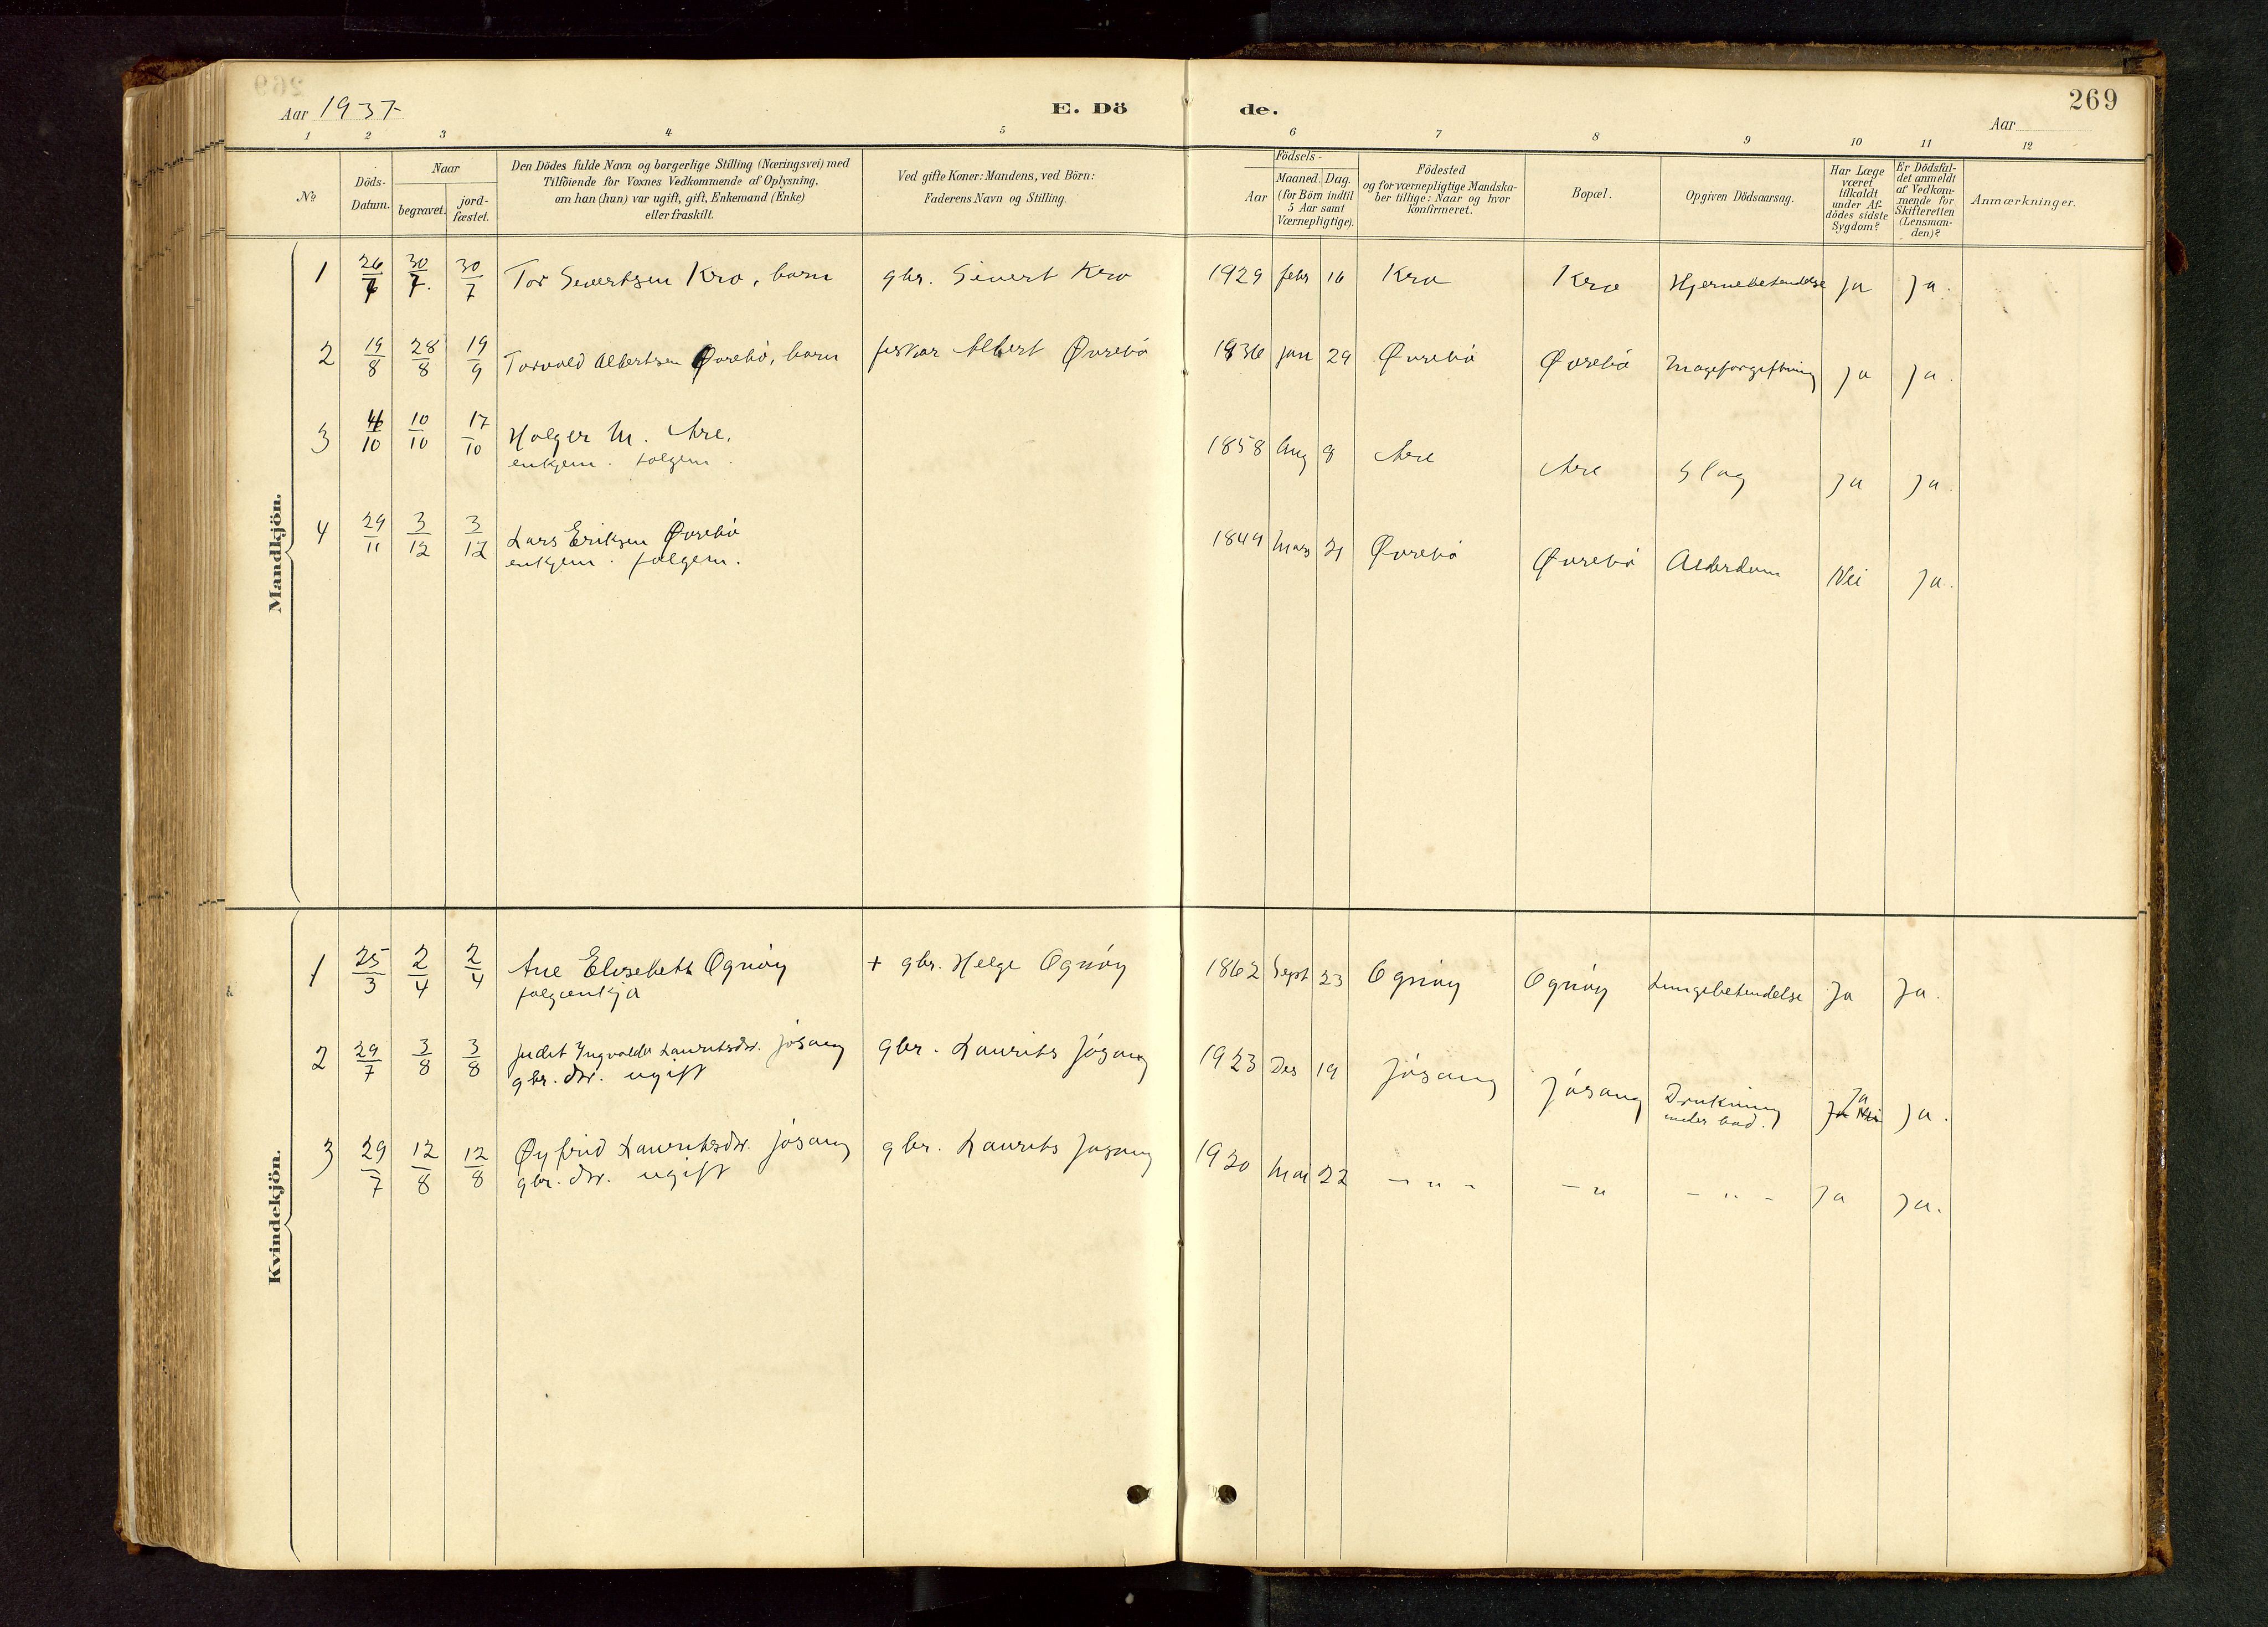 269
Aar 1937
E. Dö de.
Aar
1 2 3 4 5 6 7 8 9 10 11 12
No.
Döds-Datum.
Naar
begravet.
jord-fæstet.
Den Dödes fulde Navn og borgerlige Stilling (Næringsvei) med
Tilföiende for Voxnes Vedkommende af Oplysning,
om han (hun) var ugift, gift, Enkemand (Enke)
eller fraskilt.
Ved gifte Koner: Mandens, ved Börn:
Faderens Navn og Stilling.
Födsels-
Aar
Maaned. Dag.
(for Börn indtil
5 Aar samt
Værnepligtige).
Födested
og for værnepligtige Mandska-
ber tillige: Naar og hvor
konfirmeret.
Bopæl.
Opgiven Dödsaarsag.
Har Læge
været
tilkaldt
under Af-
dödes sidste
Sygdom?
Er Dödsfal-
det anmeldt
af Vedkom-
mende for
Skifteretten
(Lensman-
den)?
Anmærkninger.
Mandkjön.
1 26/7 30/7. 30/7 Tor Sivertsen Kro, barn gbr. Sivert Kro 1929 febr 16 Kro Kro Hjernebetendelse Ja Ja.
2 19/8 28/8 19/9 Torvald Albertsen Øvrebø, barn fiskar Albert Øvrebø 1936 jan 29 Øvrebø Øvrebø Mageforgiftning Ja Ja.
3 4/10 10/10 17/10 Holger M. Are, 1858 Aug 8 Are Are Slag Ja Ja.
enkjem. folgem.
4 29/11 3/12 3/12 Lars Eriksen Øvrebø 1849 Mars 21 Øvrebø Øvrebø Alderdom Nei Ja.
enkjem. folgem.
Kvindekjön.
1 25/3 2/4 2/4 Ane Elisebeth Ognøy + gbr. Helge Ognøy 1862 Sept 23 Ognøy Ognøy Lungebetendelse Ja Ja.
folgeenkja
2 29/7 3/8 3/8 Judit Yngvalda Lauritsdtr. Jøsang gbr. Laurits Jøsang 1923 Des 19 Jøsang Jøsang Drukning Ja Ja.
gbr. dtr. ugift under bad.
3 29/7 12/8 12/8 Øyfrid Lauritsdtr. Jøsang gbr. Laurits Jøsang 1920 Mai 22 - " - - " - " - Ja Ja.
gbr. dtr. ugift